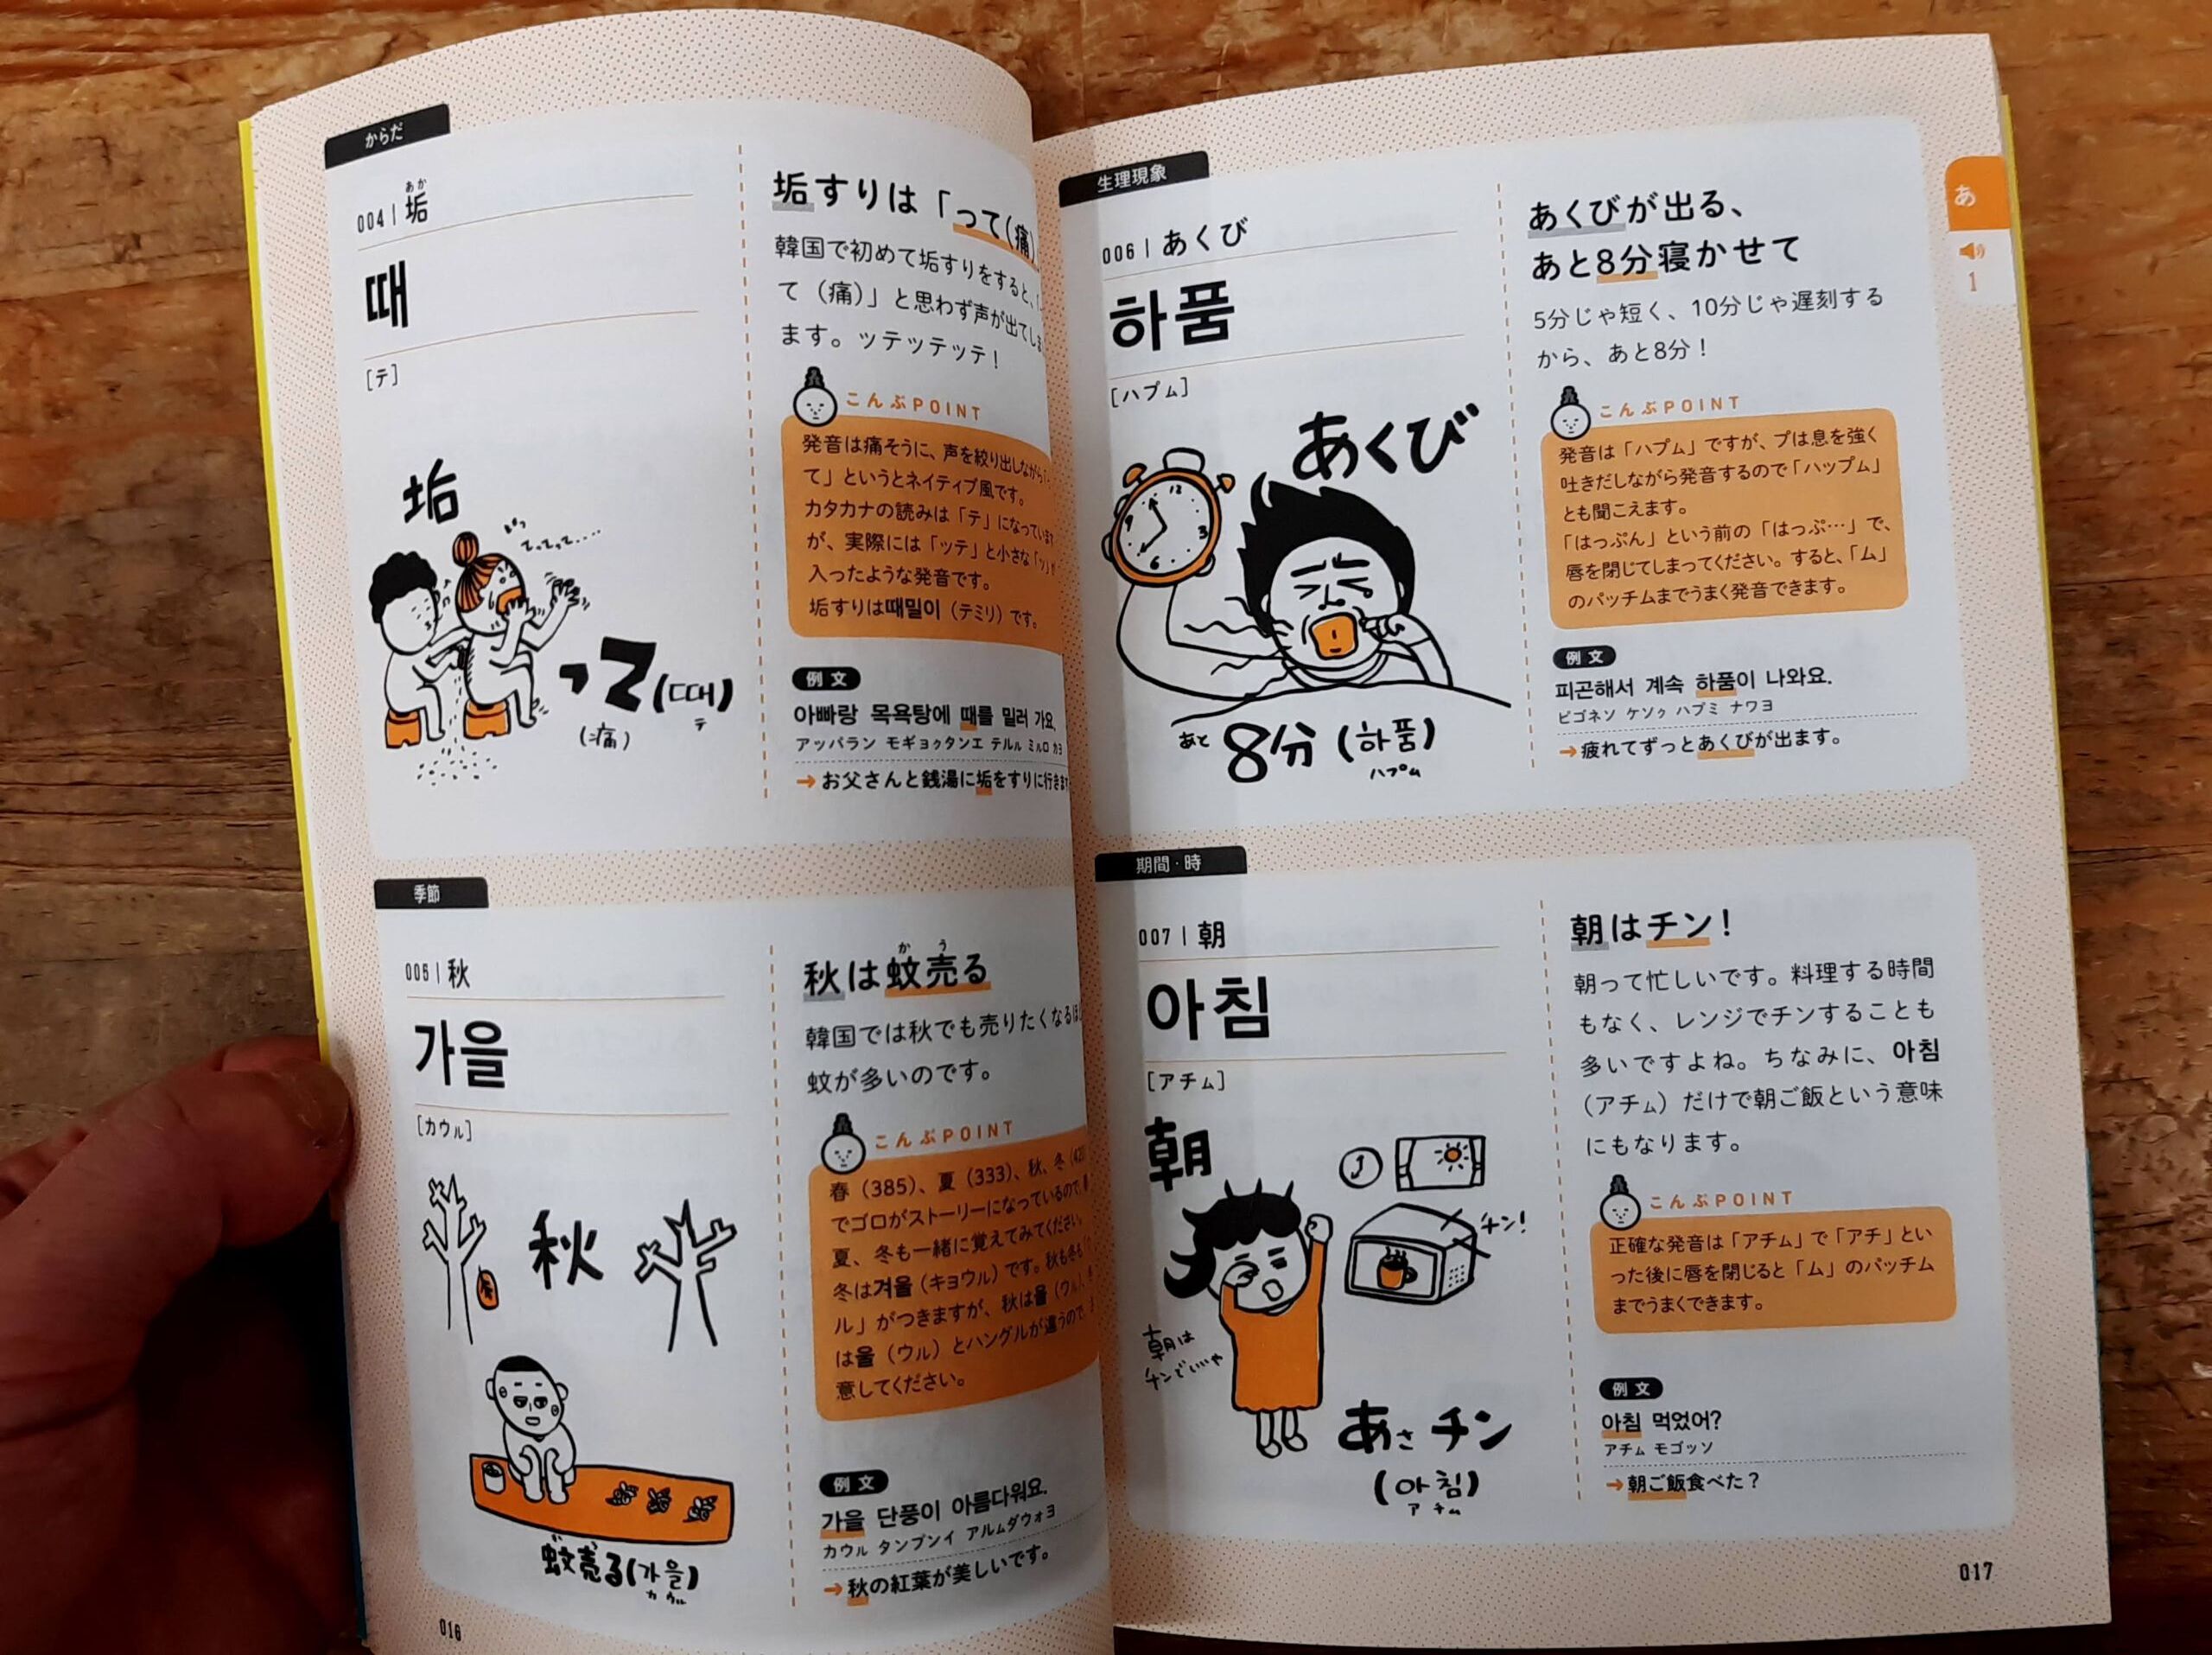 からだ
あか
004 | 垢
때
[テ]
垢
てってって……
って(때)
(痛) テ
垢すりは「って(痛)
韓国で初めて垢すりをすると、「
て(痛)」と思わず声が出てしま
ます。ッテッテッテ！
こんぶPOINT
発音は痛そうに、声を絞り出しながら
て」というとネイティブ風です。
カタカナの読みは「テ」になっています
が、実際には「ッテ」と小さな「ッ」が
入ったような発音です。
垢すりは때밀이（テミリ）です。
例文
아빠랑 목욕탕에 때를 밀러 가요.
アッパラン モギョゥタンエ テルル ミルロ カヨ
→お父さんと銭湯に垢をすりに行きま
季節
005 | 秋
가을
[カウル]
秋
蚊売る(가을)
カ ウル
かう
秋は蚊売る
韓国では秋でも売りたくなるほ
蚊が多いのです。
こんぶPOINT
春（385）、夏（333）、秋、冬（42
でゴロがストーリーになっているので、
夏、冬も一緒に覚えてみてください。
冬は겨울（キョウル）です。秋も冬も「
ル」がつきますが、秋は을（ウル）、
は울（ウル）とハングルが違うので
意してください。
例文
가을 단풍이 아름다워요.
カウル タンプンイ アルムダウォヨ
→秋の紅葉が美しいです。
016
生理現象
006 | あくび
하품
[ハプム]
あくび
12
3
6
9
あと8分(하품)
ハプム
あくびが出る、
あと8分寝かせて
5分じゃ短く、10分じゃ遅刻する
から、あと8分！
こんぶPOINT
発音は「ハプム」ですが、プは息を強く
吐きだしながら発音するので「ハップム」
とも聞こえます。
「はっぷん」という前の「はっぷ…」で、
唇を閉じてしまってください。すると、「ム」
のパッチムまでうまく発音できます。
例文
피곤해서 계속 하품이 나와요.
ピゴネソ ケソゥ ハプミ ナワヨ
→疲れてずっとあくびが出ます。
あ
1
期間・時
007 | 朝
아침
[アチム]
朝
チン！
朝は
チンでいいや
あさチン
(아침)
ア チム
朝はチン！
朝って忙しいです。料理する時間
もなく、レンジでチンすることも
多いですよね。ちなみに、아침
（アチム）だけで朝ご飯という意味
にもなります。
こんぶPOINT
正確な発音は「アチム」で「アチ」とい
った後に唇を閉じると「ム」のパッチム
までうまくできます。
例文
아침 먹었어?
アチム モゴッソ
→朝ご飯食べた？
017